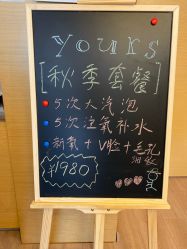 Yours
[秋季套餐]
5次大气泡
5次注氧补水
新氧+V脸+毛孔
¥1980